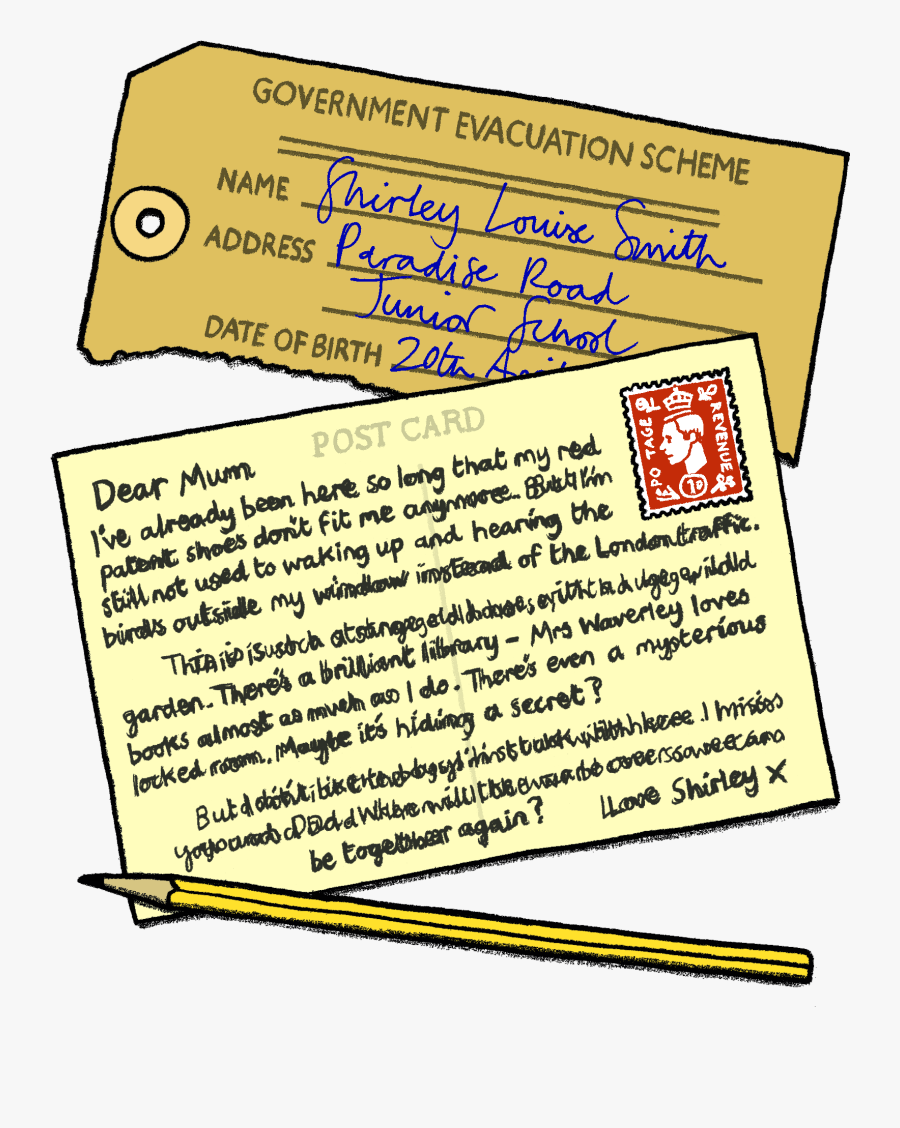 GOVERNMENT EVACUATION SCHEME
NAME Shirley Louise Smith
ADDRESS Paradise Road
Junior School
DATE OF BIRTH 20th
POST CARD
POSTAGE REVENUE
1D
Dear Mum
I've already been here so long that my red
patent shoes don't fit me anymore. But I'm
still not used to waking up and hearing the
birds outside my window instead of the London traffic.
This is such a strange old house, with a huge wild
garden. There's a brilliant library - Mrs Waverley loves
books almost as much as I do. There's even a mysterious
locked room. Maybe it's hiding a secret?
But I don't like the boy I miss
you and Dad. When will the war be over so we can
be together again? Love Shirley X